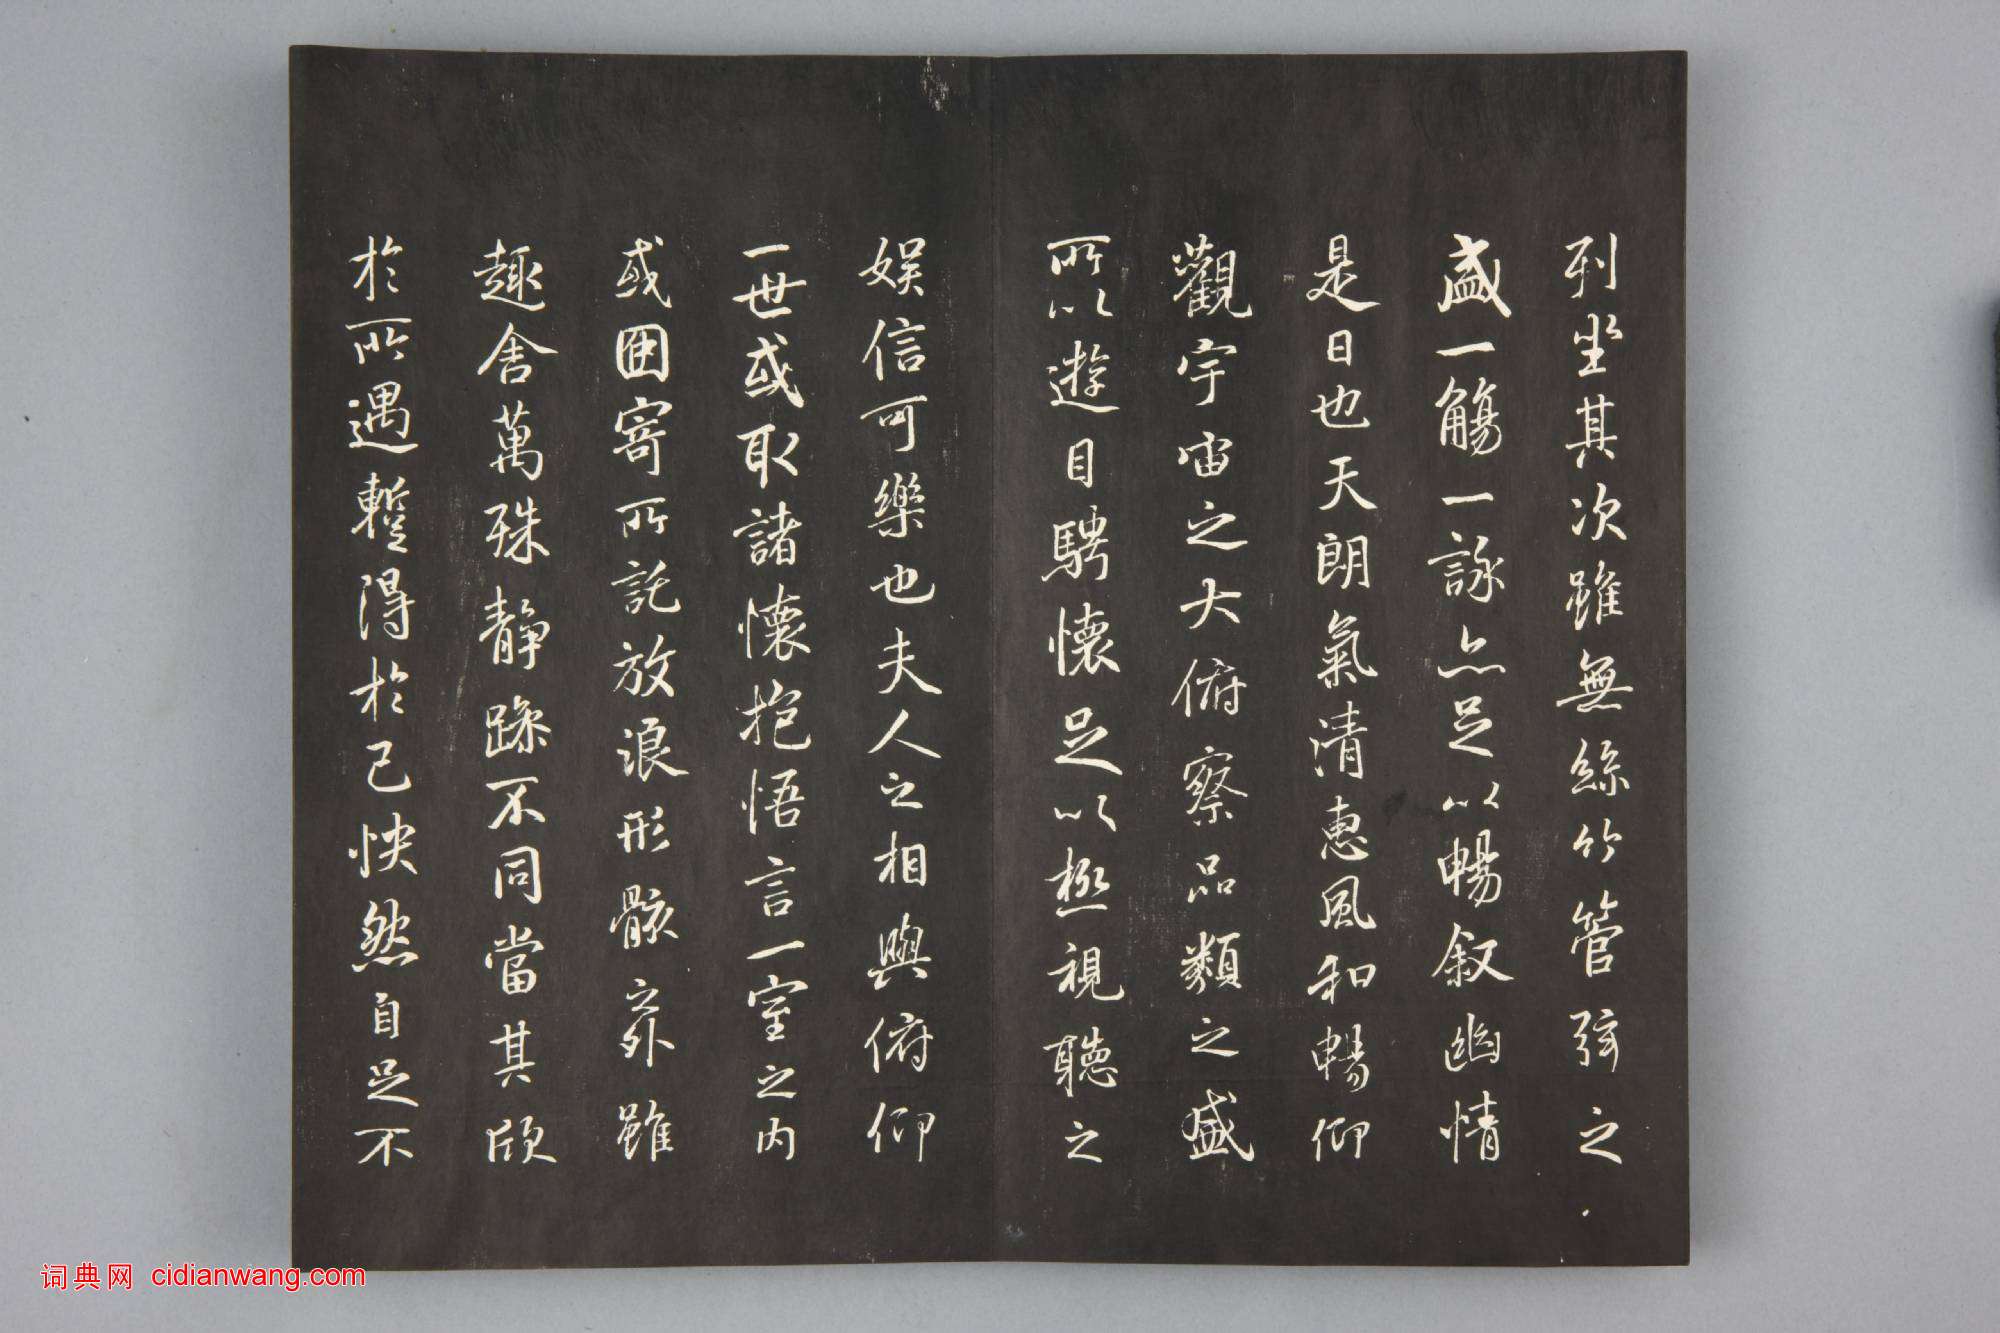 列坐其次雖無絲竹管弦之
盛一觴一詠亦足以暢叙幽情
是日也天朗氣清惠風和暢仰
觀宇宙之大俯察品類之盛
所以遊目騁懷足以極視聽之
娱信可樂也夫人之相與俯仰
一世或取諸懷抱悟言一室之内
或因寄所託放浪形骸之外雖
趣舍萬殊静躁不同當其欣
於所遇蹔得於己怏然自足不
词典网 cidianwang.com